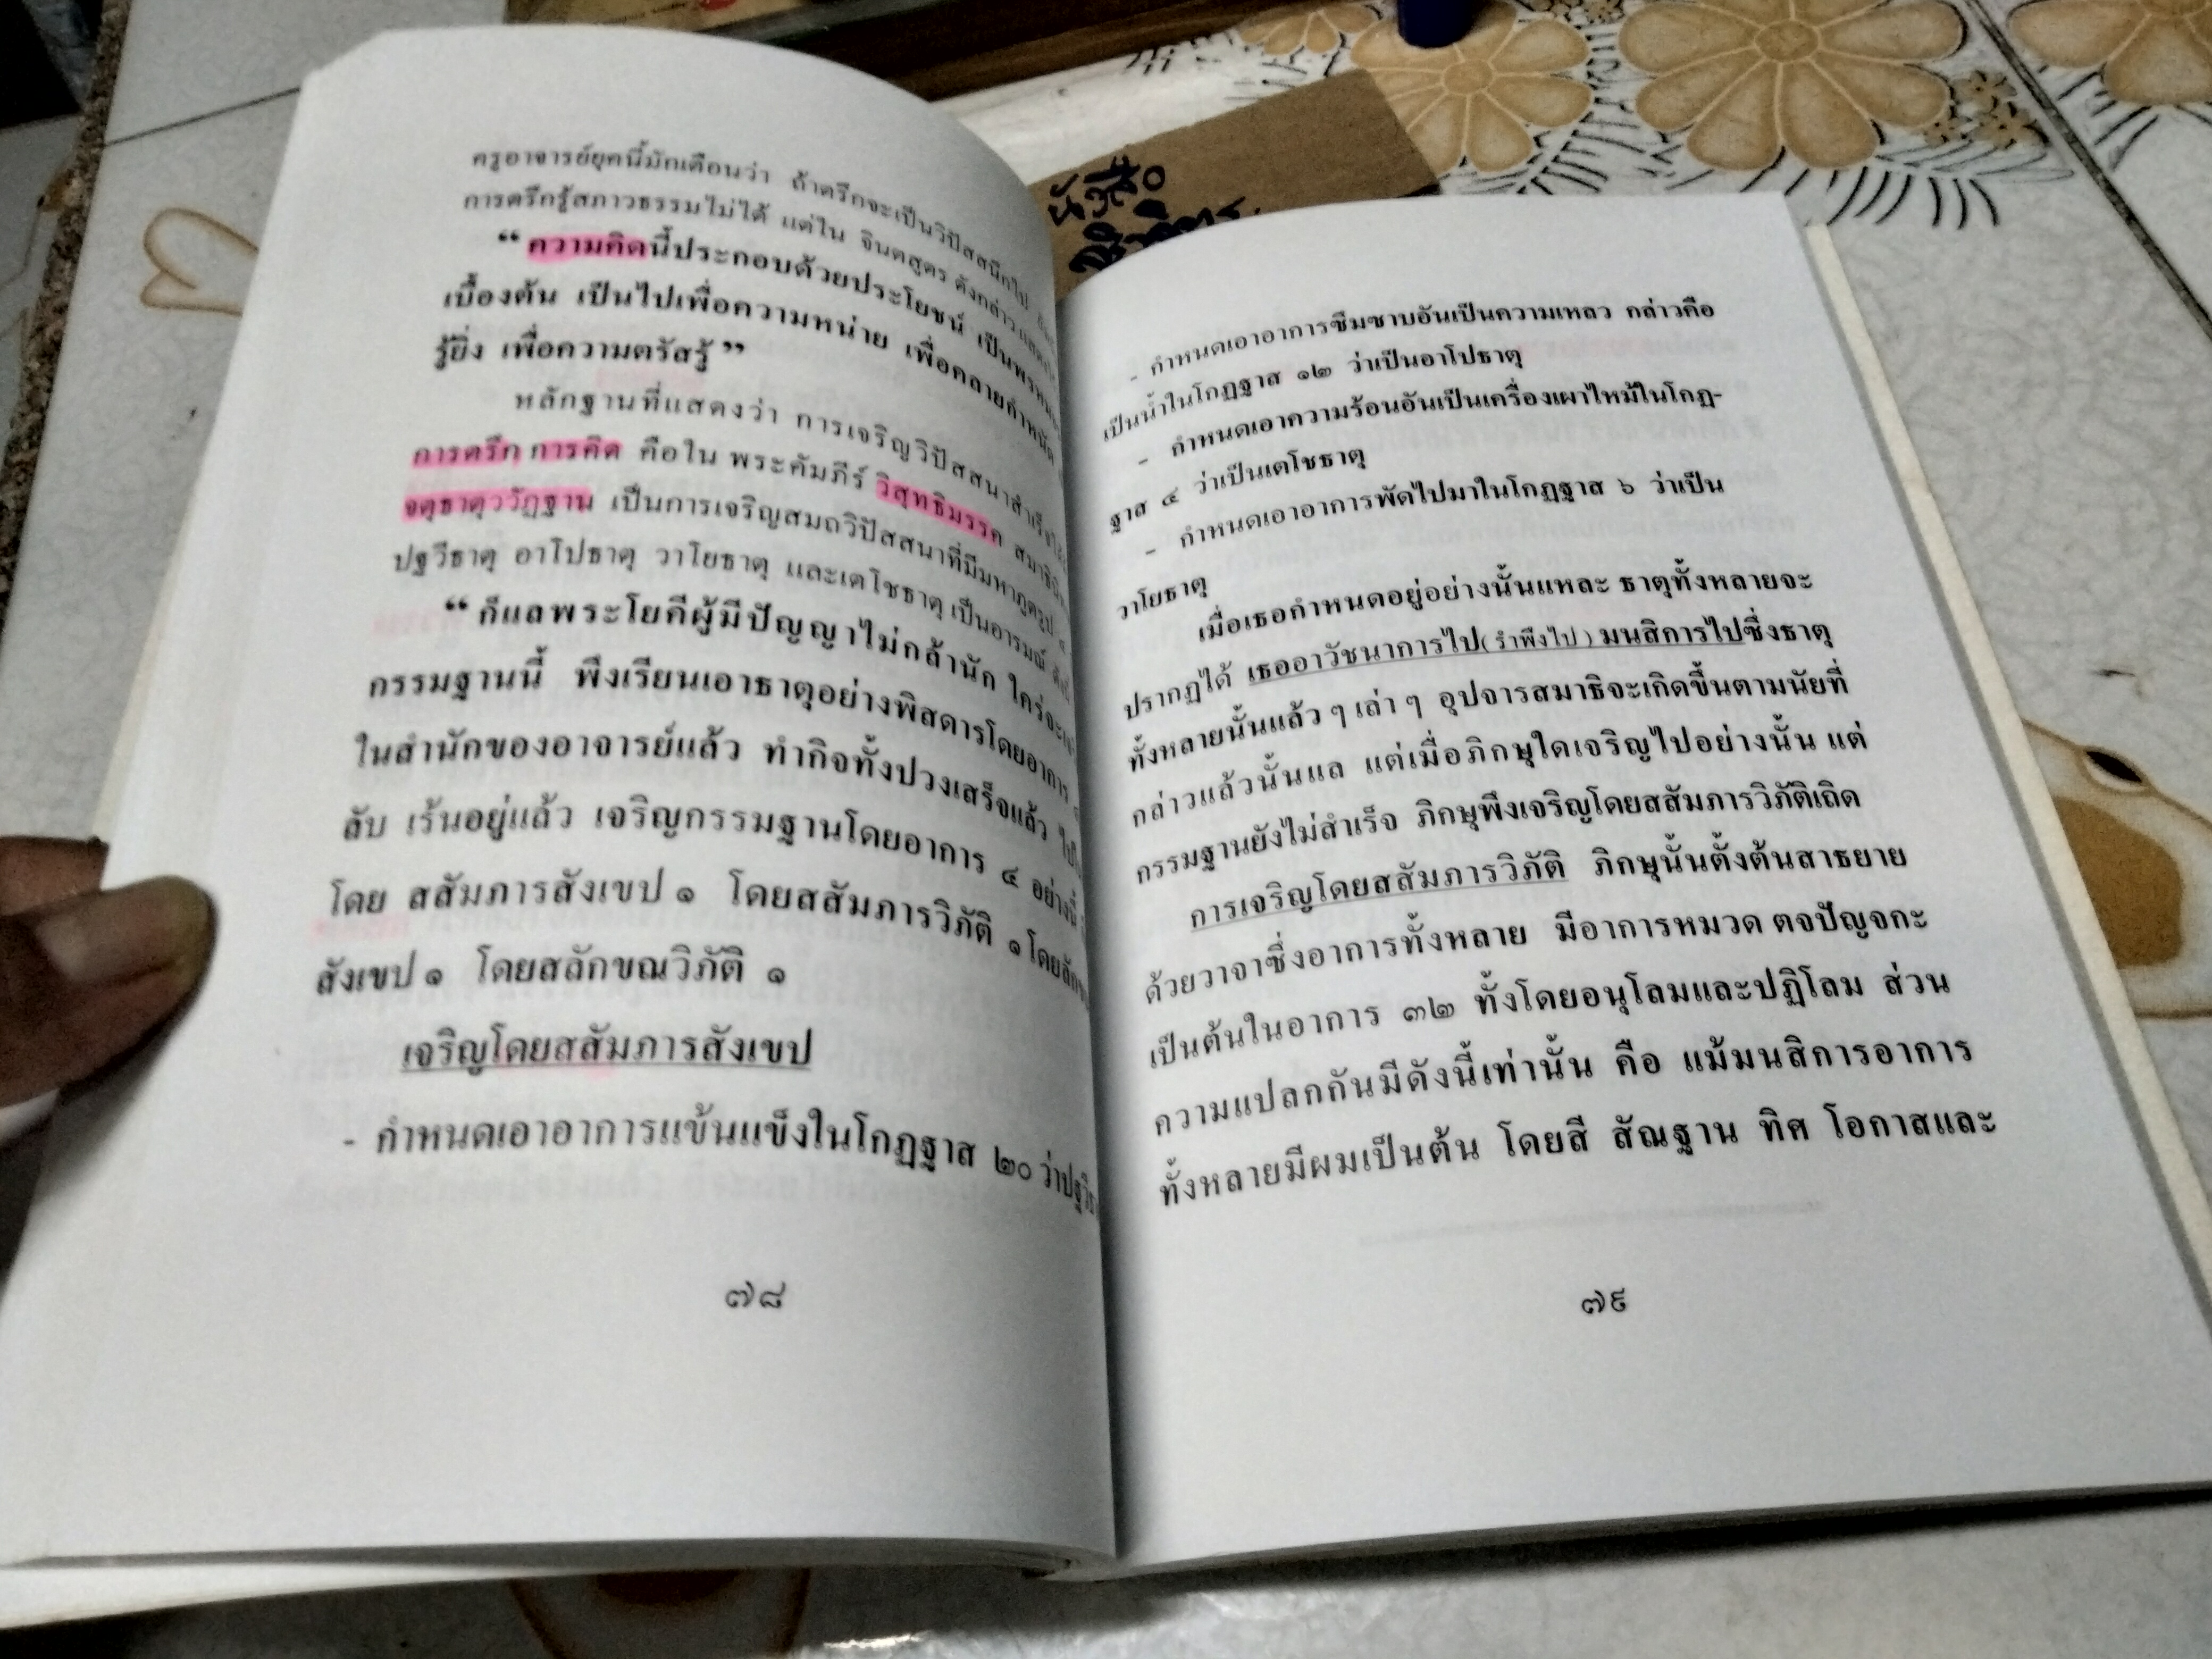 ครูอาจารย์ยุคนี้มักเตือนว่า ถ้าตรึกจะเป็นวิปัสสนึกไป
การตรึกรู้สภาวธรรมไม่ได้ แต่ใน จินตสูตร ดังกล่าว
“ ความคิดนี้ประกอบด้วยประโยชน์ เป็นพรหมจรรย์
เบื้องต้น เป็นไปเพื่อความหน่าย เพื่อคลายกำหนัด
รู้ยิ่ง เพื่อความตรัสรู้ ”
หลักฐานที่แสดงว่า การเจริญวิปัสสนาสำเร็จได้
การตรึก การคิด คือใน พระคัมภีร์ วิสุทธิมรรค
จตุธาตุววัฏฐาน เป็นการเจริญสมถวิปัสสนาที่มีมหาภูตรูป ๔
ปฐวีธาตุ อาโปธาตุ วาโยธาตุ และเตโชธาตุ เป็นอารมณ์
“ ก็แลพระโยคีผู้มีปัญญาไม่กล้านัก ใคร่จะ
กรรมฐานนี้ พึงเรียนเอาธาตุอย่างพิสดารโดยอาการ
ในสำนักของอาจารย์แล้ว ทำกิจทั้งปวงเสร็จแล้ว
ลับ เร้นอยู่แล้ว เจริญกรรมฐานโดยอาการ ๔ อย่างนี้
โดย สสัมภารสังเขป ๑ โดยสสัมภารวิภัติ ๑ โดย
สังเขป ๑ โดยสลักขณวิภัติ ๑
เจริญโดยสสัมภารสังเขป
- กำหนดเอาอาการแข้นแข็งในโกฏฐาส ๒๐ ว่า
๗๘
- กำหนดเอาอาการซึมซาบอันเป็นความเหลว กล่าวคือ
เป็นน้ำในโกฏฐาส ๑๒ ว่าเป็นอาโปธาตุ
- กำหนดเอาความร้อนอันเป็นเครื่องเผาไหม้ในโกฏ-
ฐาส ๔ ว่าเป็นเตโชธาตุ
- กำหนดเอาอาการพัดไปมาในโกฏฐาส ๖ ว่าเป็น
วาโยธาตุ
เมื่อเธอกำหนดอยู่อย่างนั้นแหละ ธาตุทั้งหลายจะ
ปรากฏได้ เธออาวัชนาการไป(รำพึงไป) มนสิการไปซึ่งธาตุ
ทั้งหลายนั้นแล้ว ๆ เล่า ๆ อุปจารสมาธิจะเกิดขึ้นตามนัยที่
กล่าวแล้วนั้นแล แต่เมื่อภิกษุใดเจริญไปอย่างนั้น แต่
กรรมฐานยังไม่สำเร็จ ภิกษุพึงเจริญโดยสสัมภารวิภัติเถิด
การเจริญโดยสสัมภารวิภัติ ภิกษุนั้นตั้งต้นสาธยาย
ด้วยวาจาซึ่งอาการทั้งหลาย มีอาการหมวด ตจปัญจกะ
เป็นต้นในอาการ ๓๒ ทั้งโดยอนุโลมและปฏิโลม ส่วน
ความแปลกกันมีดังนี้เท่านั้น คือ แม้มนสิการอาการ
ทั้งหลายมีผมเป็นต้น โดยสี สัณฐาน ทิศ โอกาสและ
๗๙